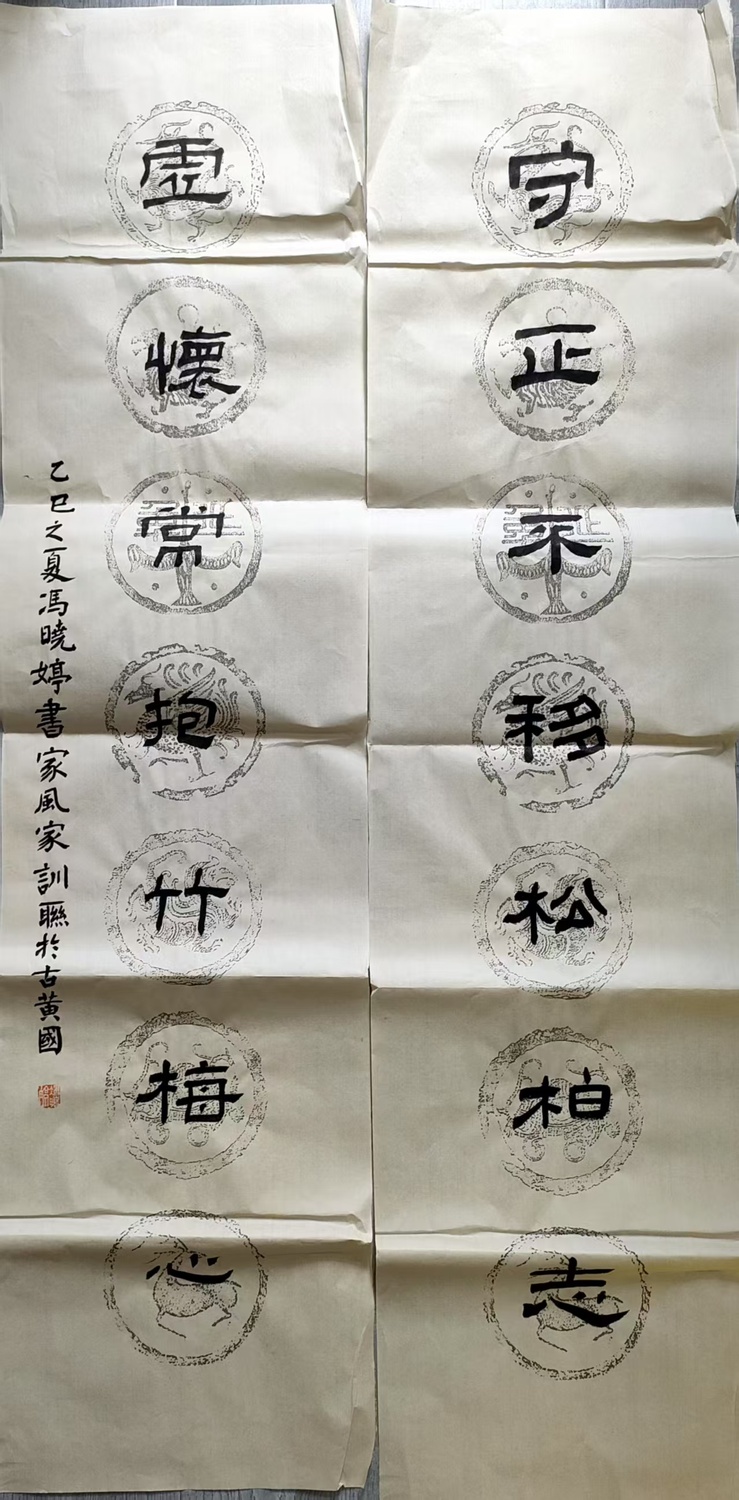 守正不移松柏志
虛懷常抱竹梅心
乙巳之夏馮曉婷書家風家訓聯於古黃國